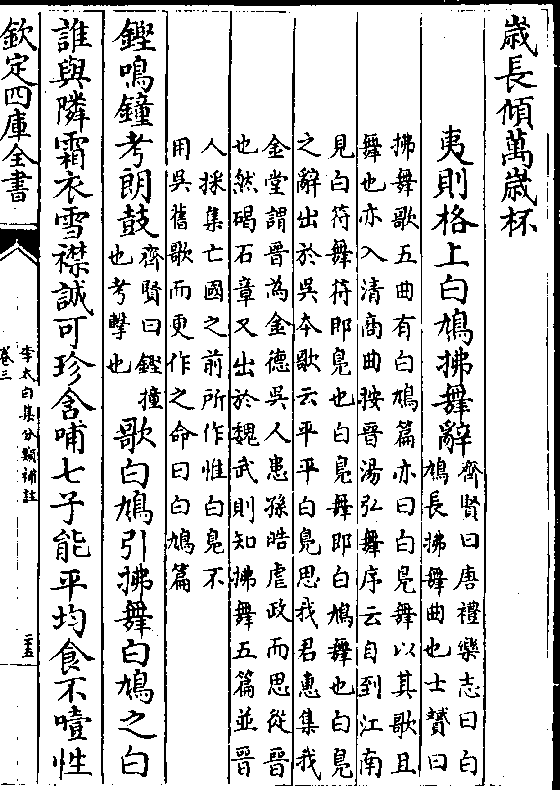 歳長傾萬歳杯
夷則格上白鳩拂舞辭齊賢曰唐禮樂志曰白
鳩長拂舞曲也士贇曰
拂舞歌五曲有白鳩篇亦曰白鳬舞以其歌且
舞也亦入清商曲按晉湯弘舞序云自到江南
見白符舞符即鳬也白鳬舞即白鳩舞也白鳬
之辭出於吳夲歌云平平白鳬思我君惠集我
金堂謂晉為金德吳人患孫皓虐政而思從晉
也然碣石章又出於魏武則知拂舞五篇並晉
人採集亡國之前所作惟白鳬不
用吳舊歌而更作之命曰白鳩篇
鏗鳴鐘考朗鼓齊賢曰鏗撞
也考擊也歌白鳩引拂舞白鳩之白
誰與隣霜衣雪襟誠可珍含哺七子能平均食不噎性
欽定四庫全書
李太白集分類補註
卷三
二五